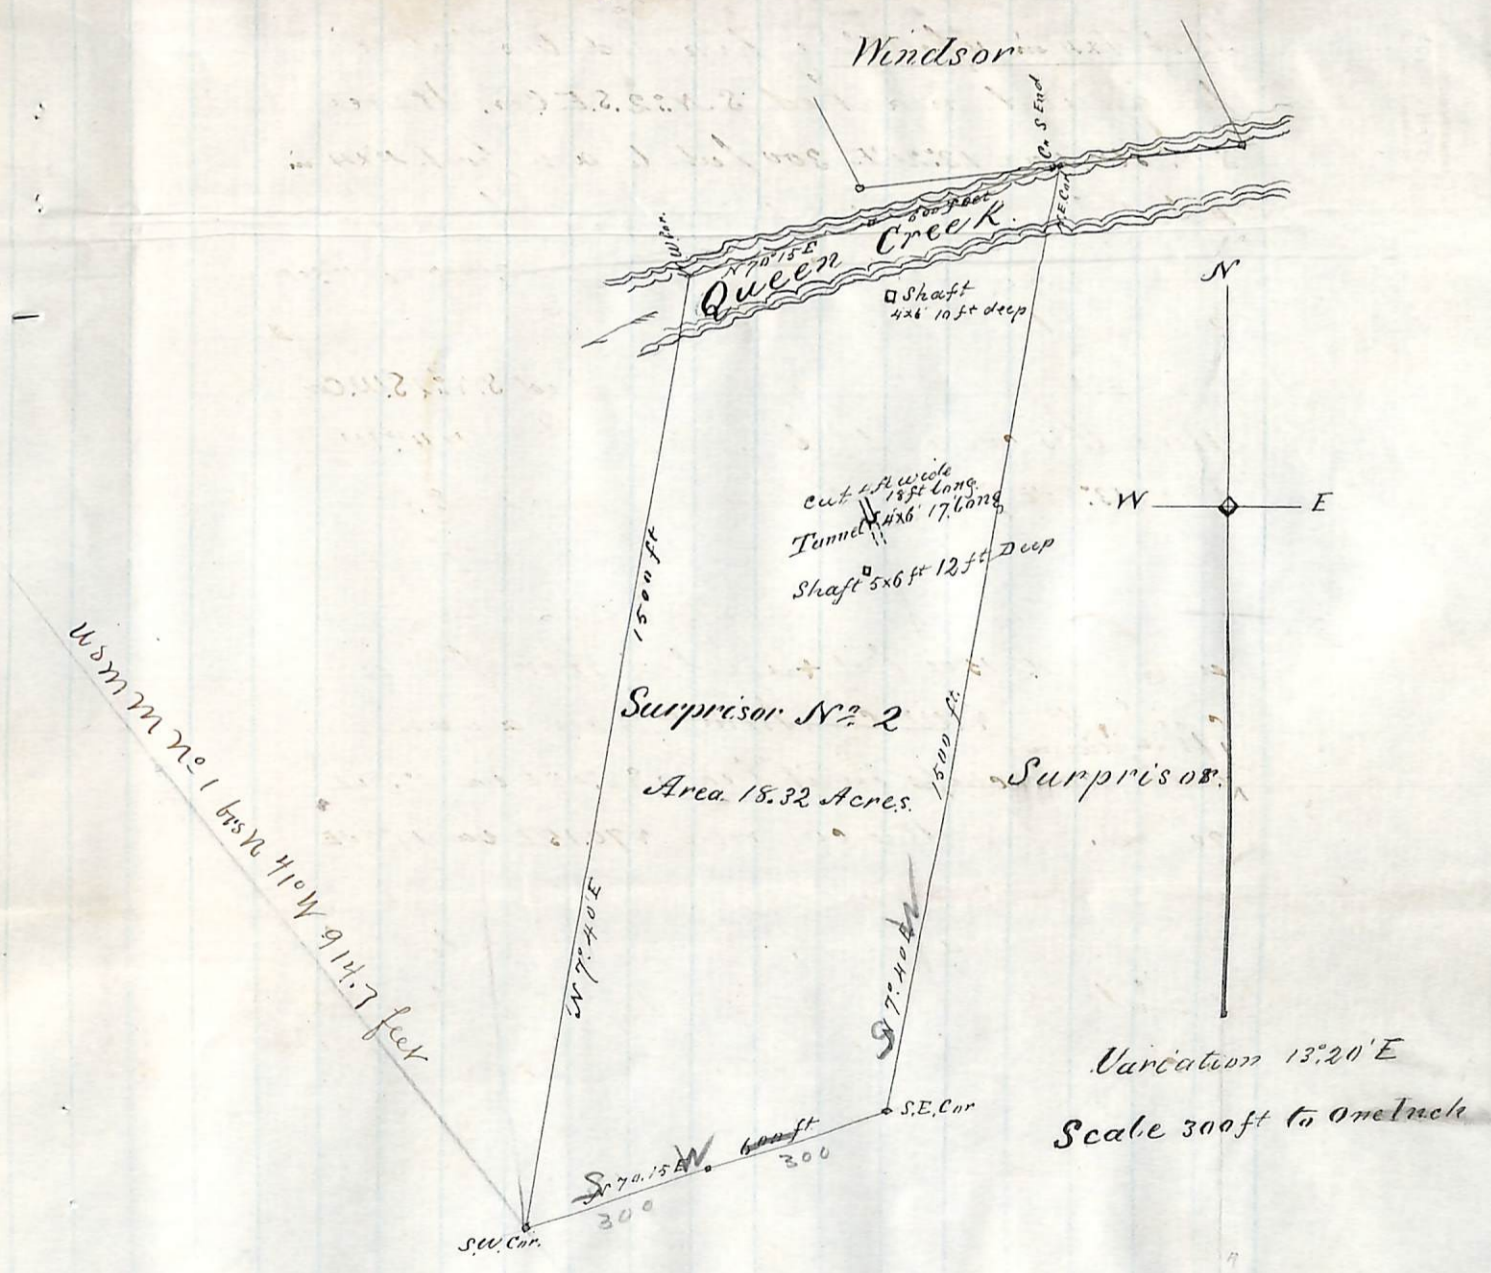 Windsor
C. S End
N.E.Cor
W Cor.
600 feet
N 70°15 E
Queen Creek.
Shaft
4x6 10 ft deep
N
W
E
Cut 4 ft wide
18 ft long.
Tunnel 4x6' 17' long
Shaft 5x6 ft 12 ft Deep
1500 ft
1500 ft.
Surprisor No. 2
Area. 18.32 Acres.
Surprisor.
U S M M No 1 brs N 41° W 914.7 feet
N 7°.40 E
S N 7°.40 E W
S.E.Cor
S N 70.15 E W 600 ft
300
300
S.W.Cor.
Variation 13°.20' E
Scale 300 ft to One Inch